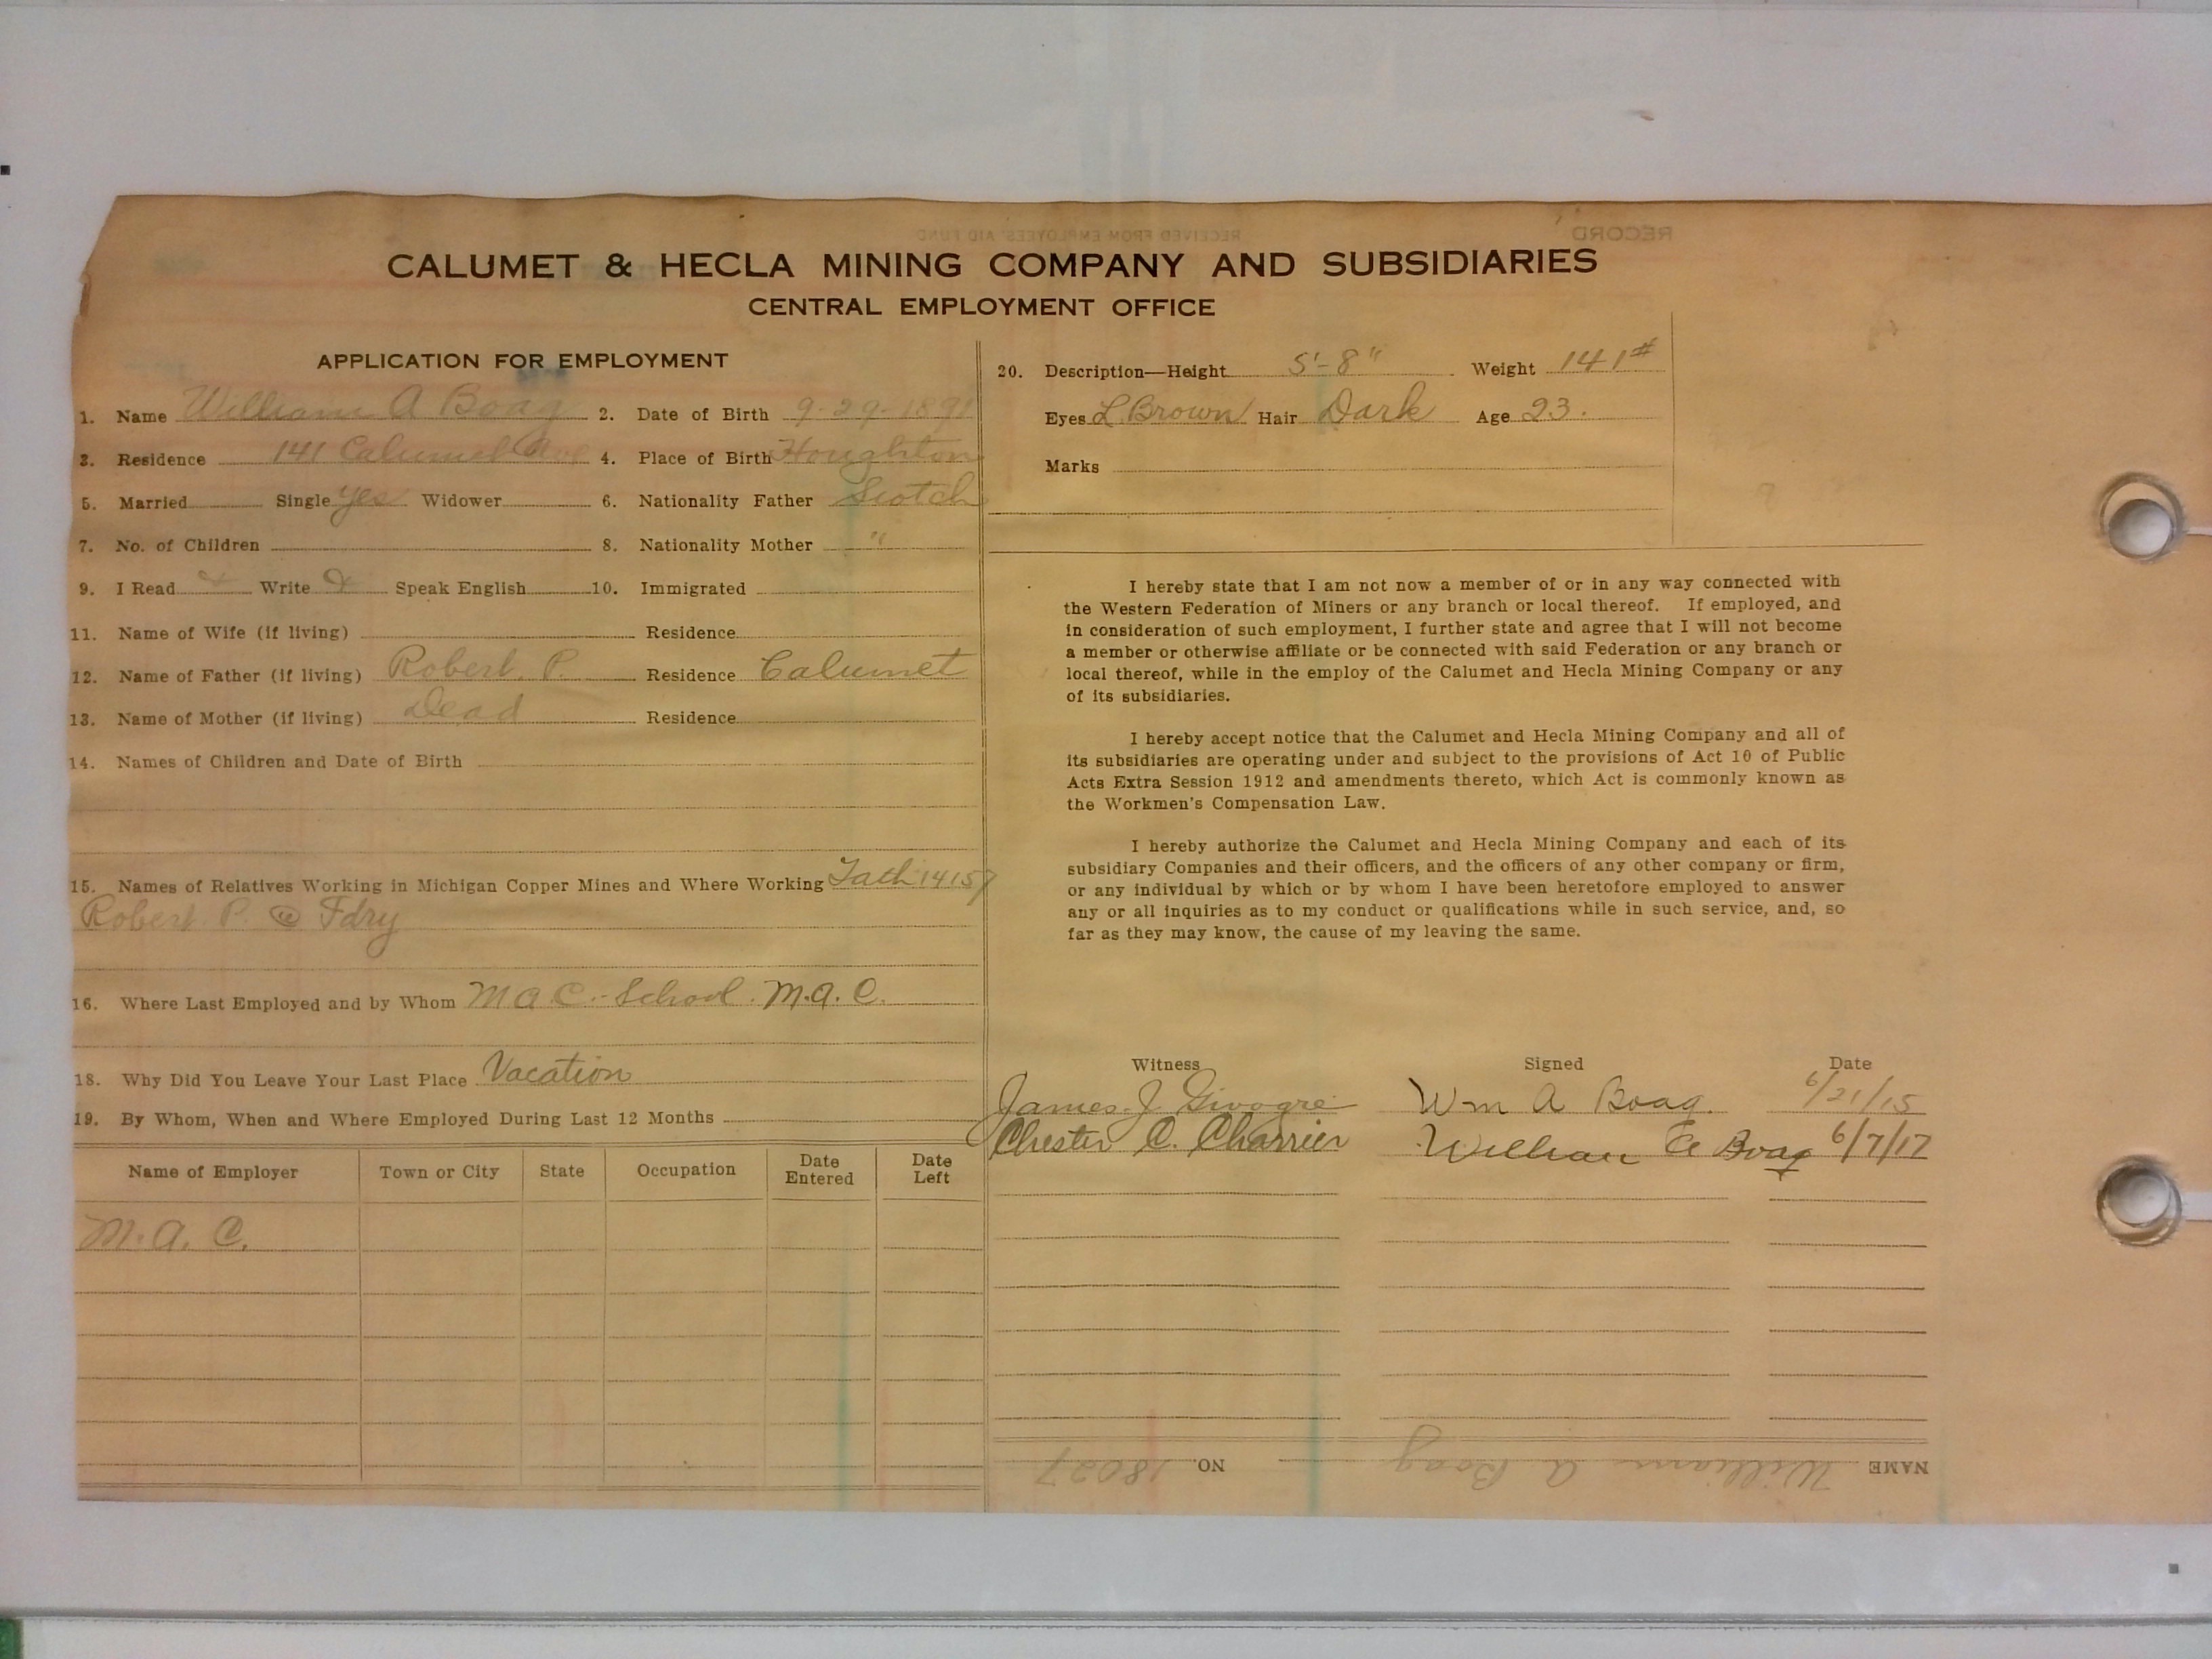 CALUMET & HECLA MINING COMPANY AND SUBSIDIARIES
CENTRAL EMPLOYMENT OFFICE
APPLICATION FOR EMPLOYMENT
1. Name William A Boag 2. Date of Birth 9-29-1891
3. Residence 141 Calumet Ave 4. Place of Birth Houghton
5. Married Single Yes Widower 6. Nationality Father Scotch
7. No. of Children 8. Nationality Mother "
9. I Read Write Speak English 10. Immigrated
11. Name of Wife (if living) Residence
12. Name of Father (if living) Robert. P. Residence Calumet
13. Name of Mother (if living) Dead Residence
14. Names of Children and Date of Birth
15. Names of Relatives Working in Michigan Copper Mines and Where Working Fath 14157
Robert P. @ Fdry
16. Where Last Employed and by Whom M A C.- School. M.A.C.
18. Why Did You Leave Your Last Place Vacation
19. By Whom, When and Where Employed During Last 12 Months
Name of Employer Town or City State Occupation Date Entered Date Left
M.A.C.
20. Description—Height 5'-8" Weight 141#
Eyes L. Brown Hair Dark Age 23.
Marks
I hereby state that I am not now a member of or in any way connected with
the Western Federation of Miners or any branch or local thereof. If employed, and
in consideration of such employment, I further state and agree that I will not become
a member or otherwise affiliate or be connected with said Federation or any branch or
local thereof, while in the employ of the Calumet and Hecla Mining Company or any
of its subsidiaries.
I hereby accept notice that the Calumet and Hecla Mining Company and all of
its subsidiaries are operating under and subject to the provisions of Act 10 of Public
Acts Extra Session 1912 and amendments thereto, which Act is commonly known as
the Workmen's Compensation Law.
I hereby authorize the Calumet and Hecla Mining Company and each of its
subsidiary Companies and their officers, and the officers of any other company or firm,
or any individual by which or by whom I have been heretofore employed to answer
any or all inquiries as to my conduct or qualifications while in such service, and, so
far as they may know, the cause of my leaving the same.
Witness Signed Date
James J Wm A Boag. 6/21/15
Chester C. Charrier William A Boag 6/7/17
NAME William A Boag NO. 18027
RECEIVED FROM EMPLOYEES' AID FUND
RECORD